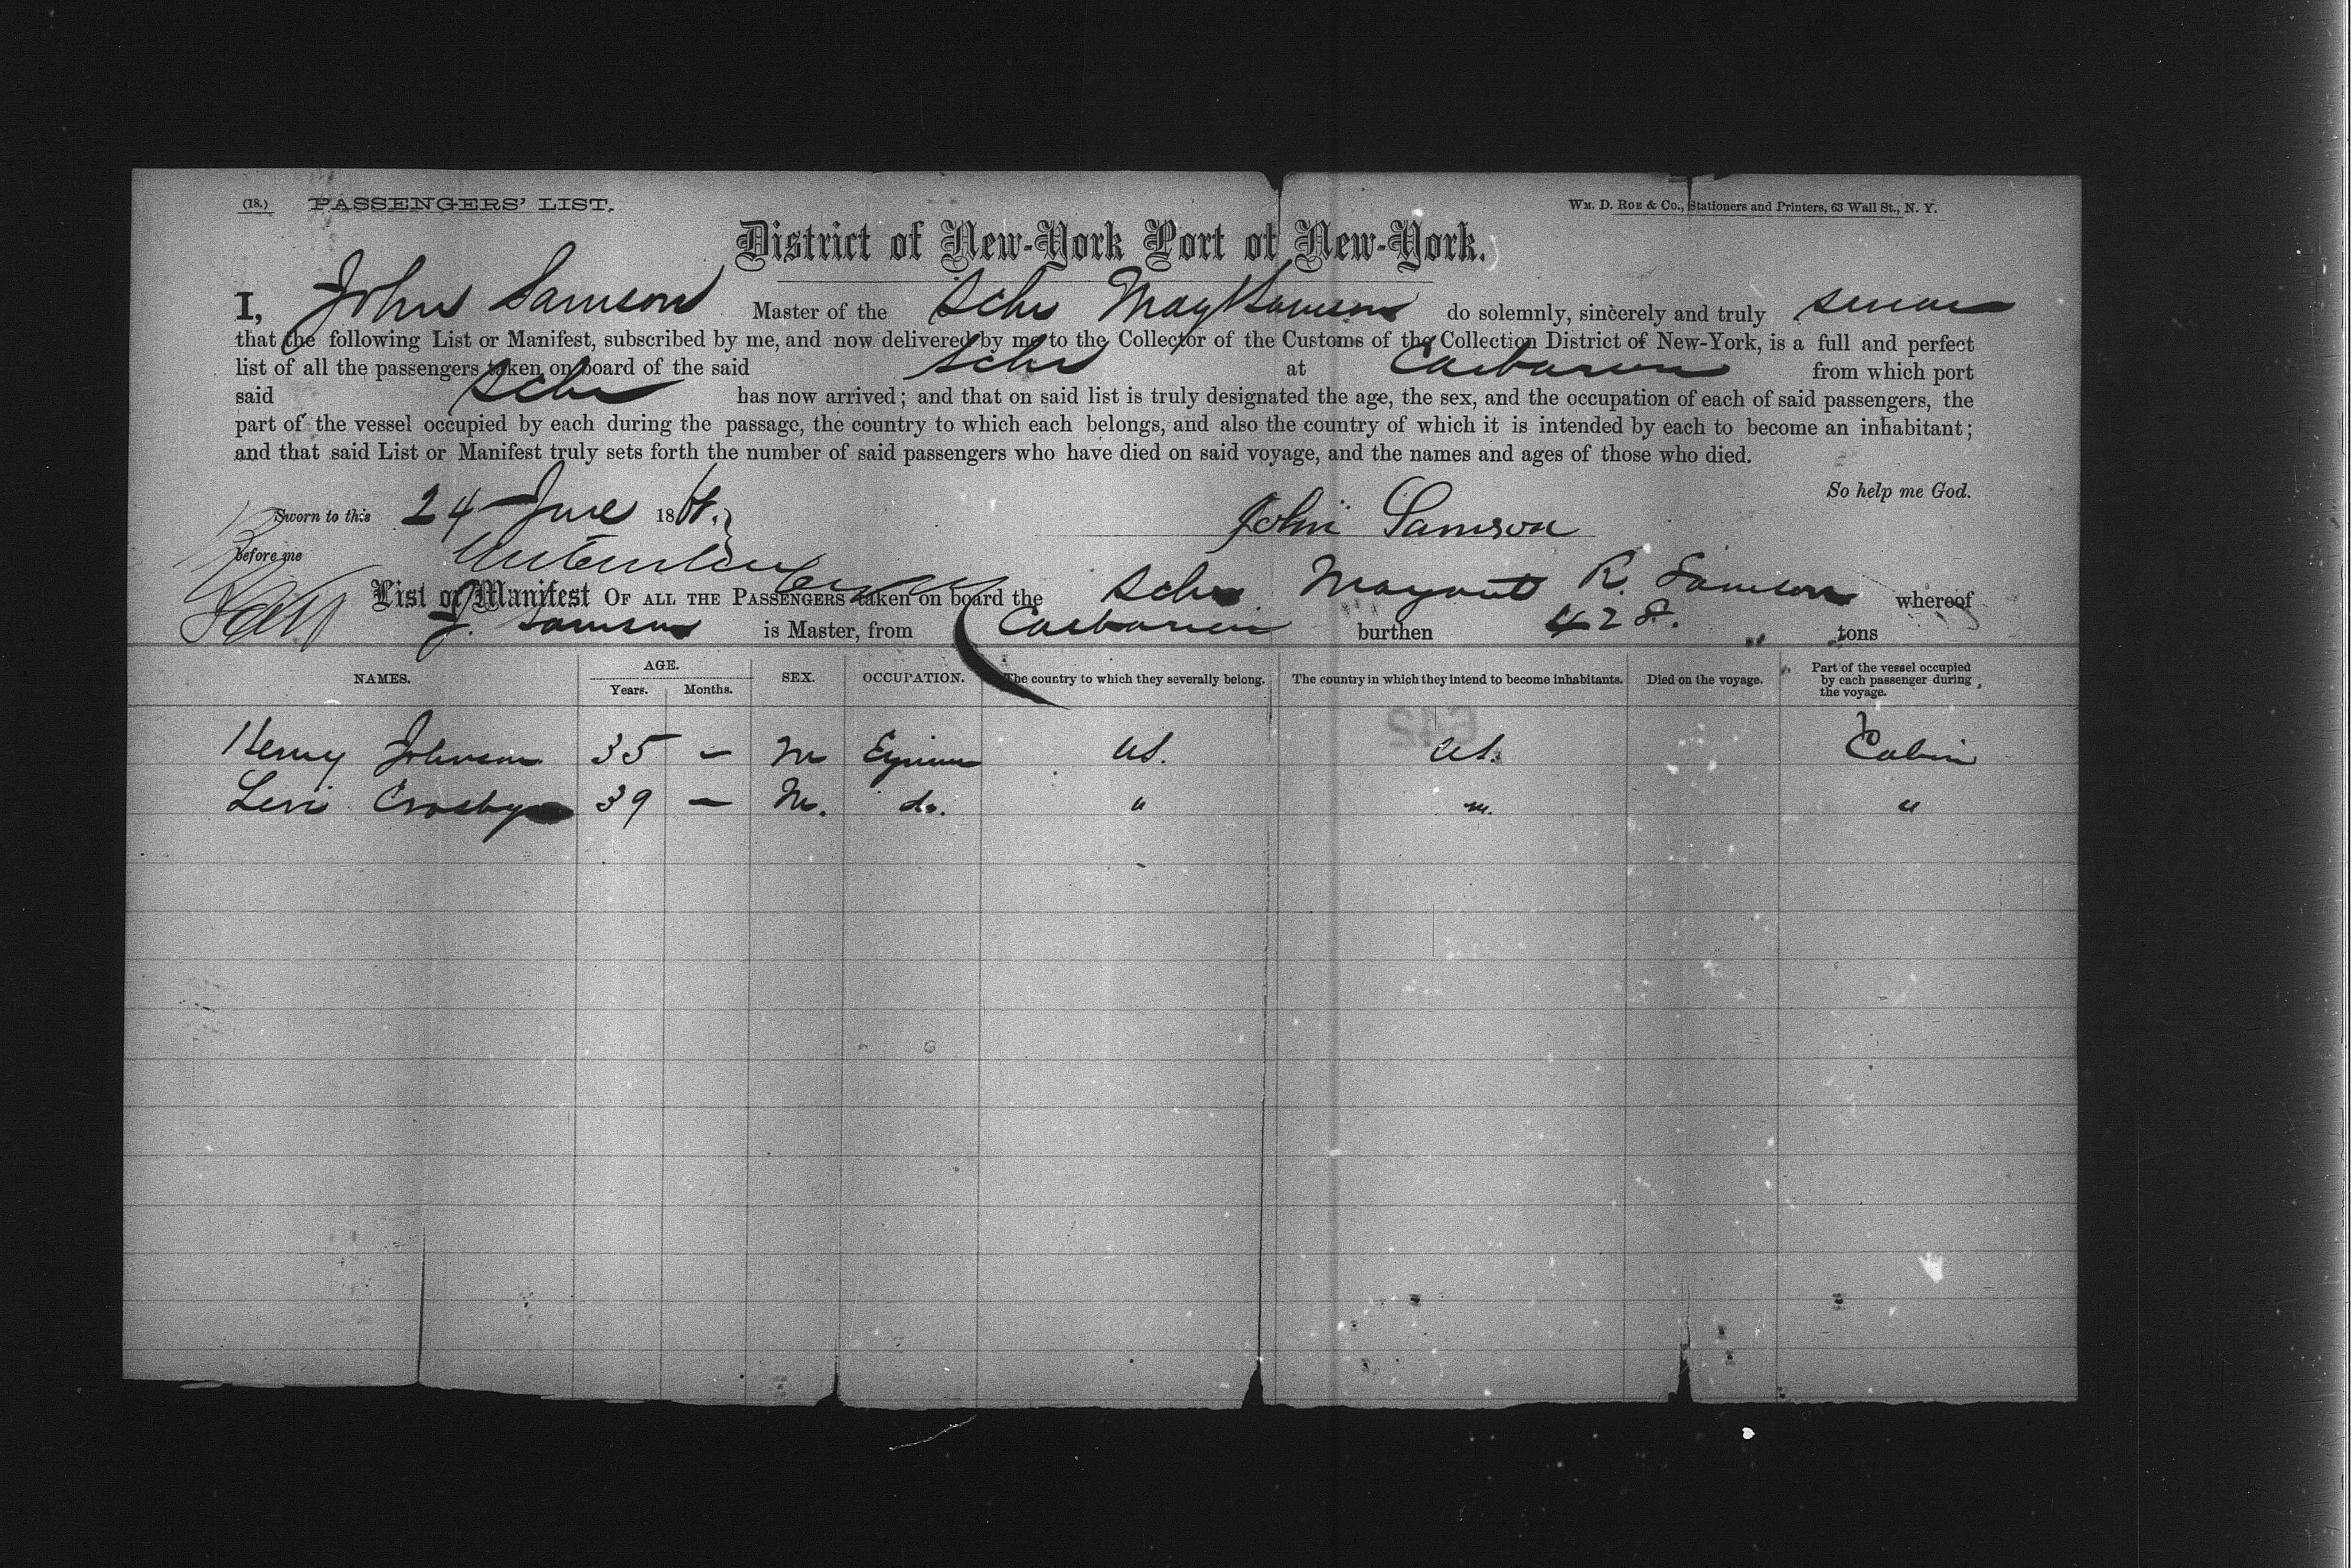 (18.) PASSENGERS' LIST. WM. D. ROE & CO., Stationers and Printers, 63 Wall St., N. Y.
District of New-York Port of New-York.
I, John Samson Master of the Schr May Samson do solemnly, sincerely and truly swear
that the following List or Manifest, subscribed by me, and now delivered by me to the Collector of the Customs of the Collection District of New-York, is a full and perfect
list of all the passengers taken on board of the said Schr at Caibarien from which port
said Schr has now arrived; and that on said list is truly designated the age, the sex, and the occupation of each of said passengers, the
part of the vessel occupied by each during the passage, the country to which each belongs, and also the country of which it is intended by each to become an inhabitant;
and that said List or Manifest truly sets forth the number of said passengers who have died on said voyage, and the names and ages of those who died.
So help me God.
Sworn to this 24 June 18
John Samson
before me
List or Manifest OF ALL THE PASSENGERS taken on board the Schr R. Samson whereof
J. Samson is Master, from Caibarien burthen 428. tons
NAMES. AGE. Years. Months. SEX. OCCUPATION. The country to which they severally belong. The country in which they intend to become inhabitants. Died on the voyage. Part of the vessel occupied by each passenger during the voyage.
Henry Johnson 35 — M US. US. Cabin
Levi Crosby 39 — M. do. " " "